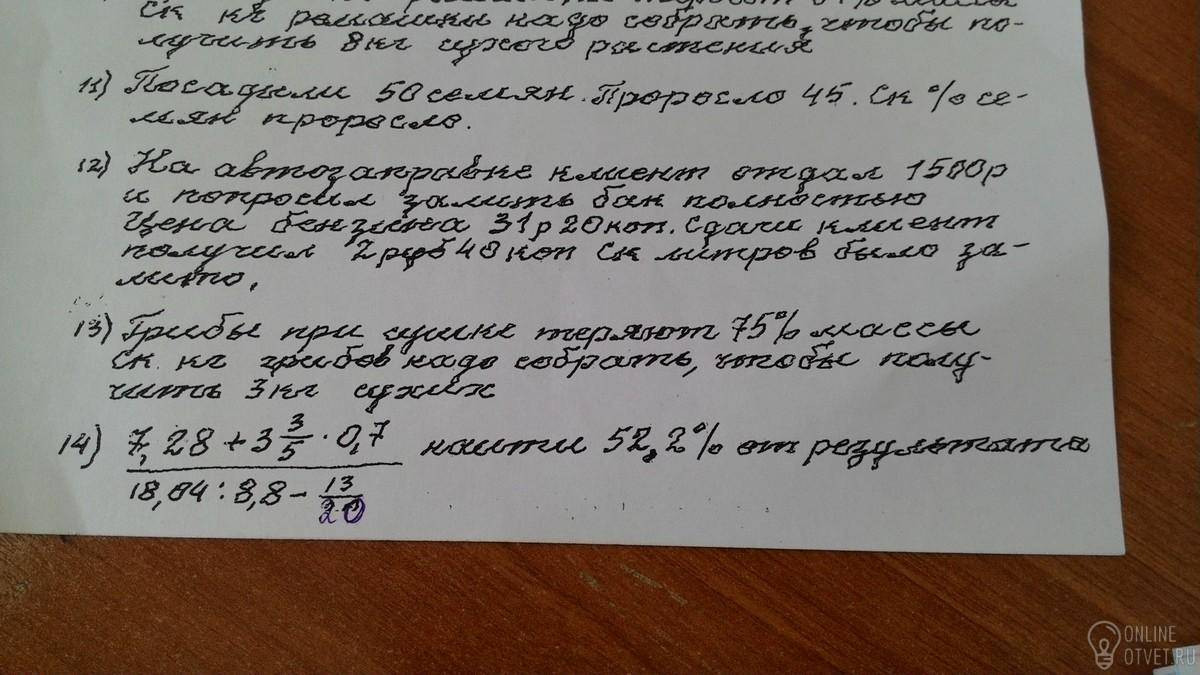 ск кг ромашки надо собрать, чтобы по-
лучить 8 кг сухого растения
11) Посадили 50 семян. Проросло 45. Ск % се-
мян проросло.
12) На автозаправке клиент отдал 1500р
и попросил залить бак полностью
Цена бензина 31р 20 коп. Сдачи клиент
получил 2 руб 40 коп Ск литров было за-
лито.
13) Грибы при сушке теряют 75% массы
Ск. кг грибов надо собрать, чтобы полу-
чить 3 кг сухих
14) 7,28 + 3 3/5 · 0,7 найти 52,2% от результата
18,04 : 8,8 - 13/20
ONLINE
OTVET.RU